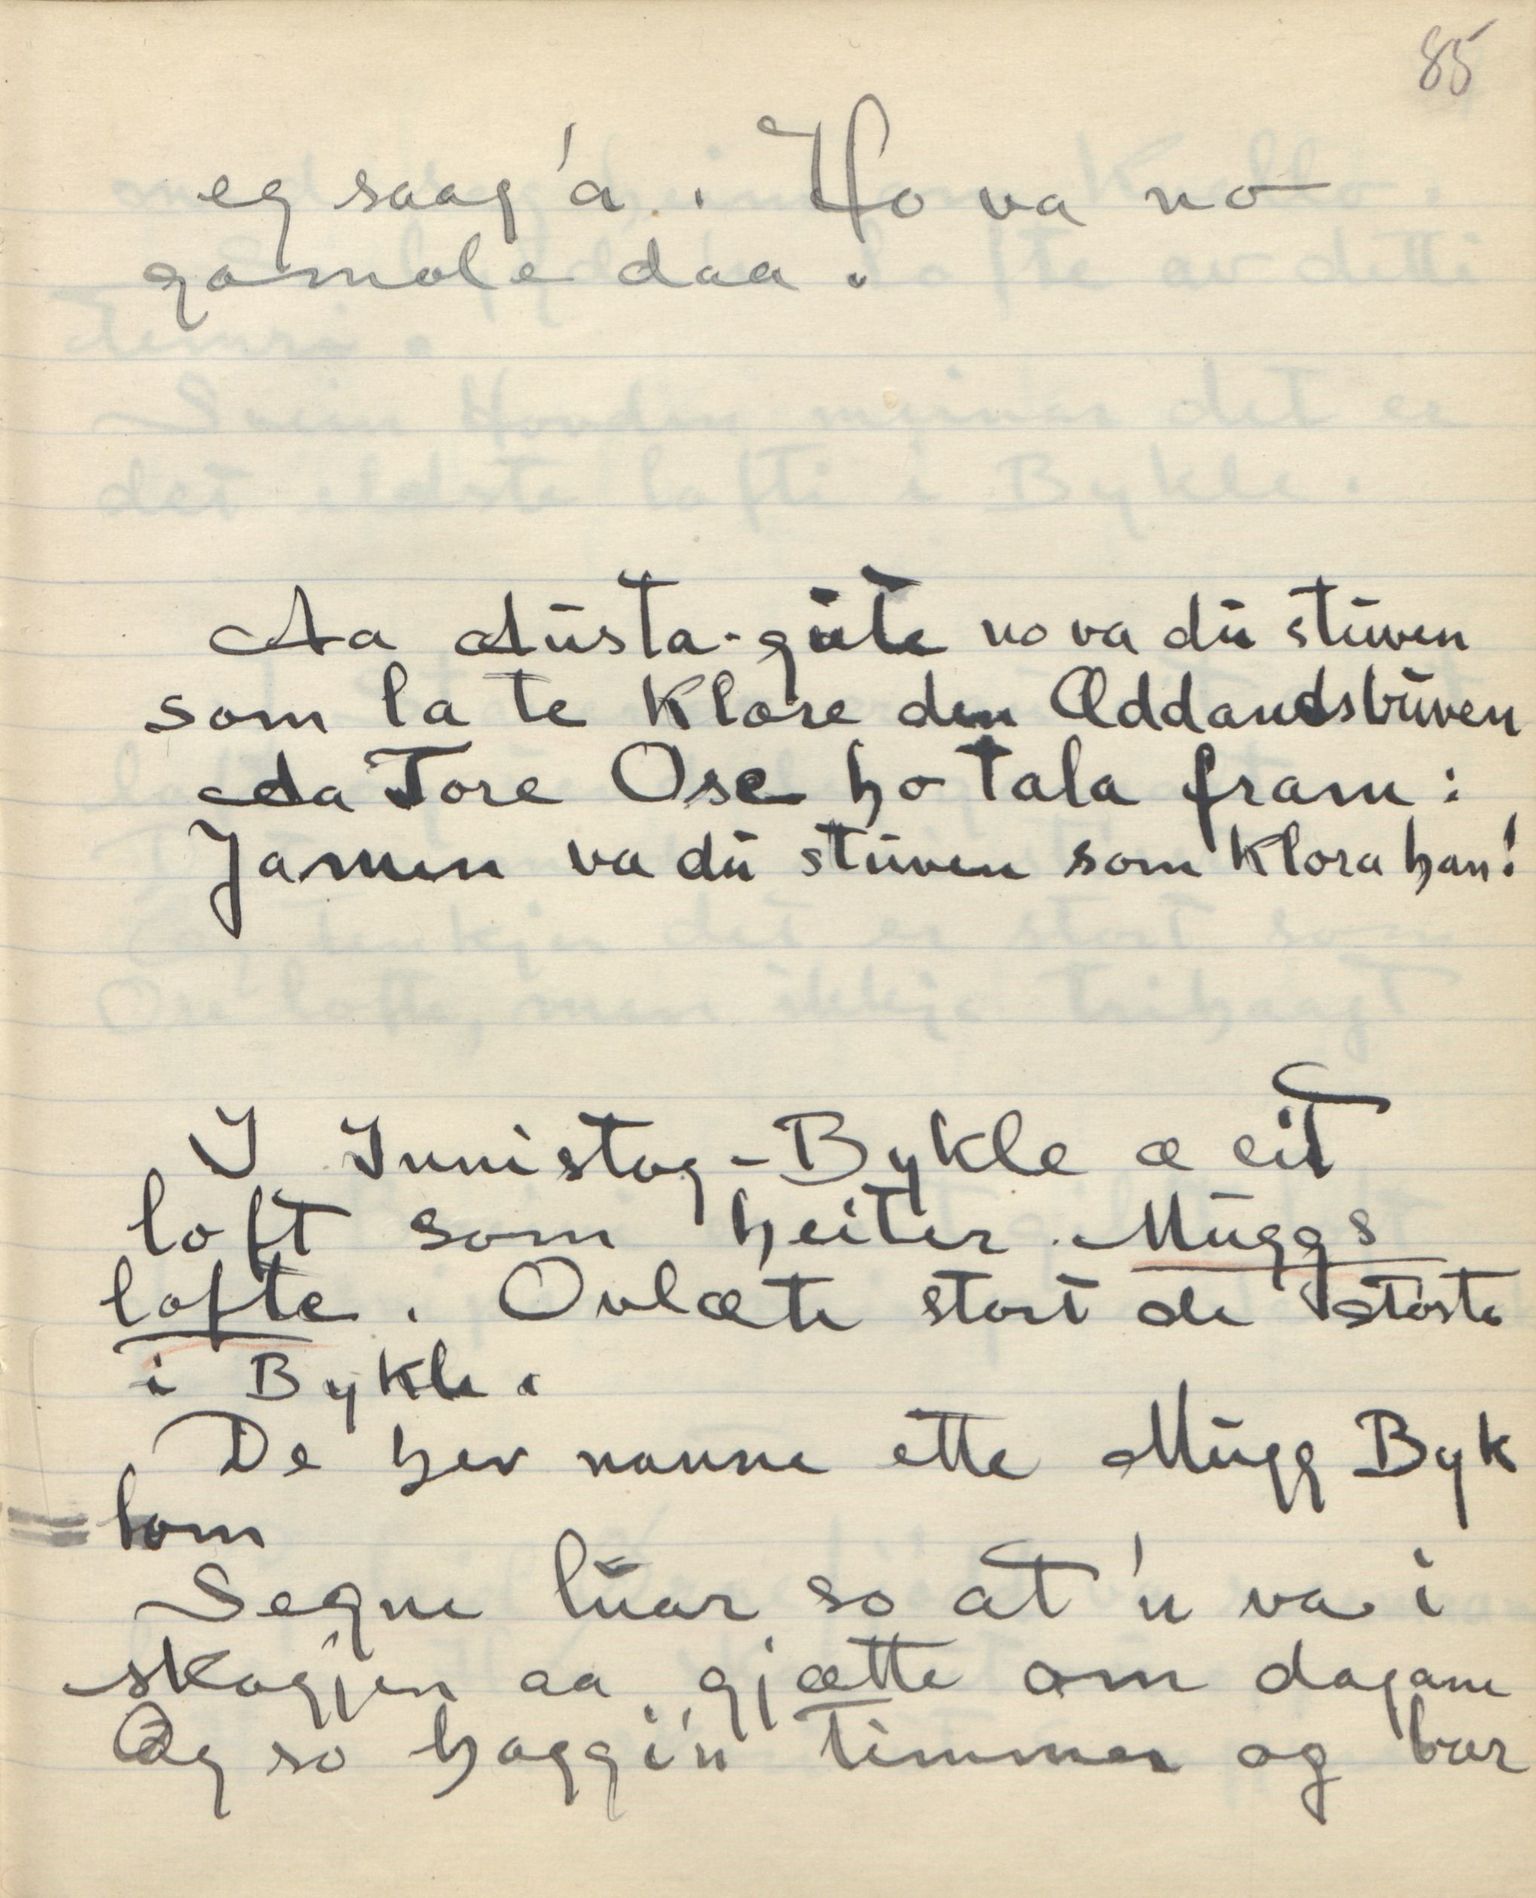 85
eg saag'a. Ho va no
gamole daa.
Aa Austa-gute no va du stuven
som la te klore den Øddandsbuven
da Tore Ose ho tala fram:
Jamen va du stuven som klora han!
I Innistog-Bykle æ eit
loft som heiter Muggs
lofte. Ovlæte stort de største
i Bykle.
De hev nanne ette Mugg Byk
lom
Segne luar so at 'n va i
skogjen aa gjætte om dagane
Og so hoggi'n timmer og bar